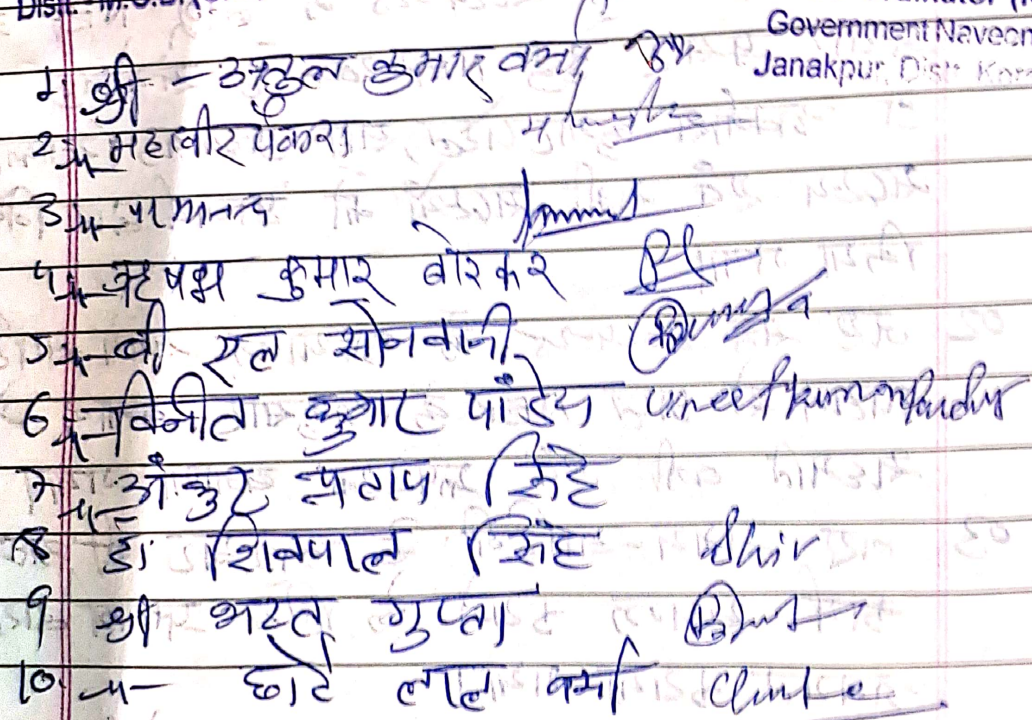 Government Naveen
Janakpur Dist
1. श्री - अतुल कुमार वर्मा
2 -"- महावीर पैकरा
3 -"- परमानन्द
4 -"- ऋषभ कुमार बोरकर
5 -"- बी एल सोनवानी
6 -"- विनीत कुमार पांडेय Vineet kumar
7 -"- अंकुर प्रताप सिंह
8 डॉ शिवपाल सिंह Shiv
9 श्री भरत गुप्ता
10. -"- छोटे लाल वर्मा